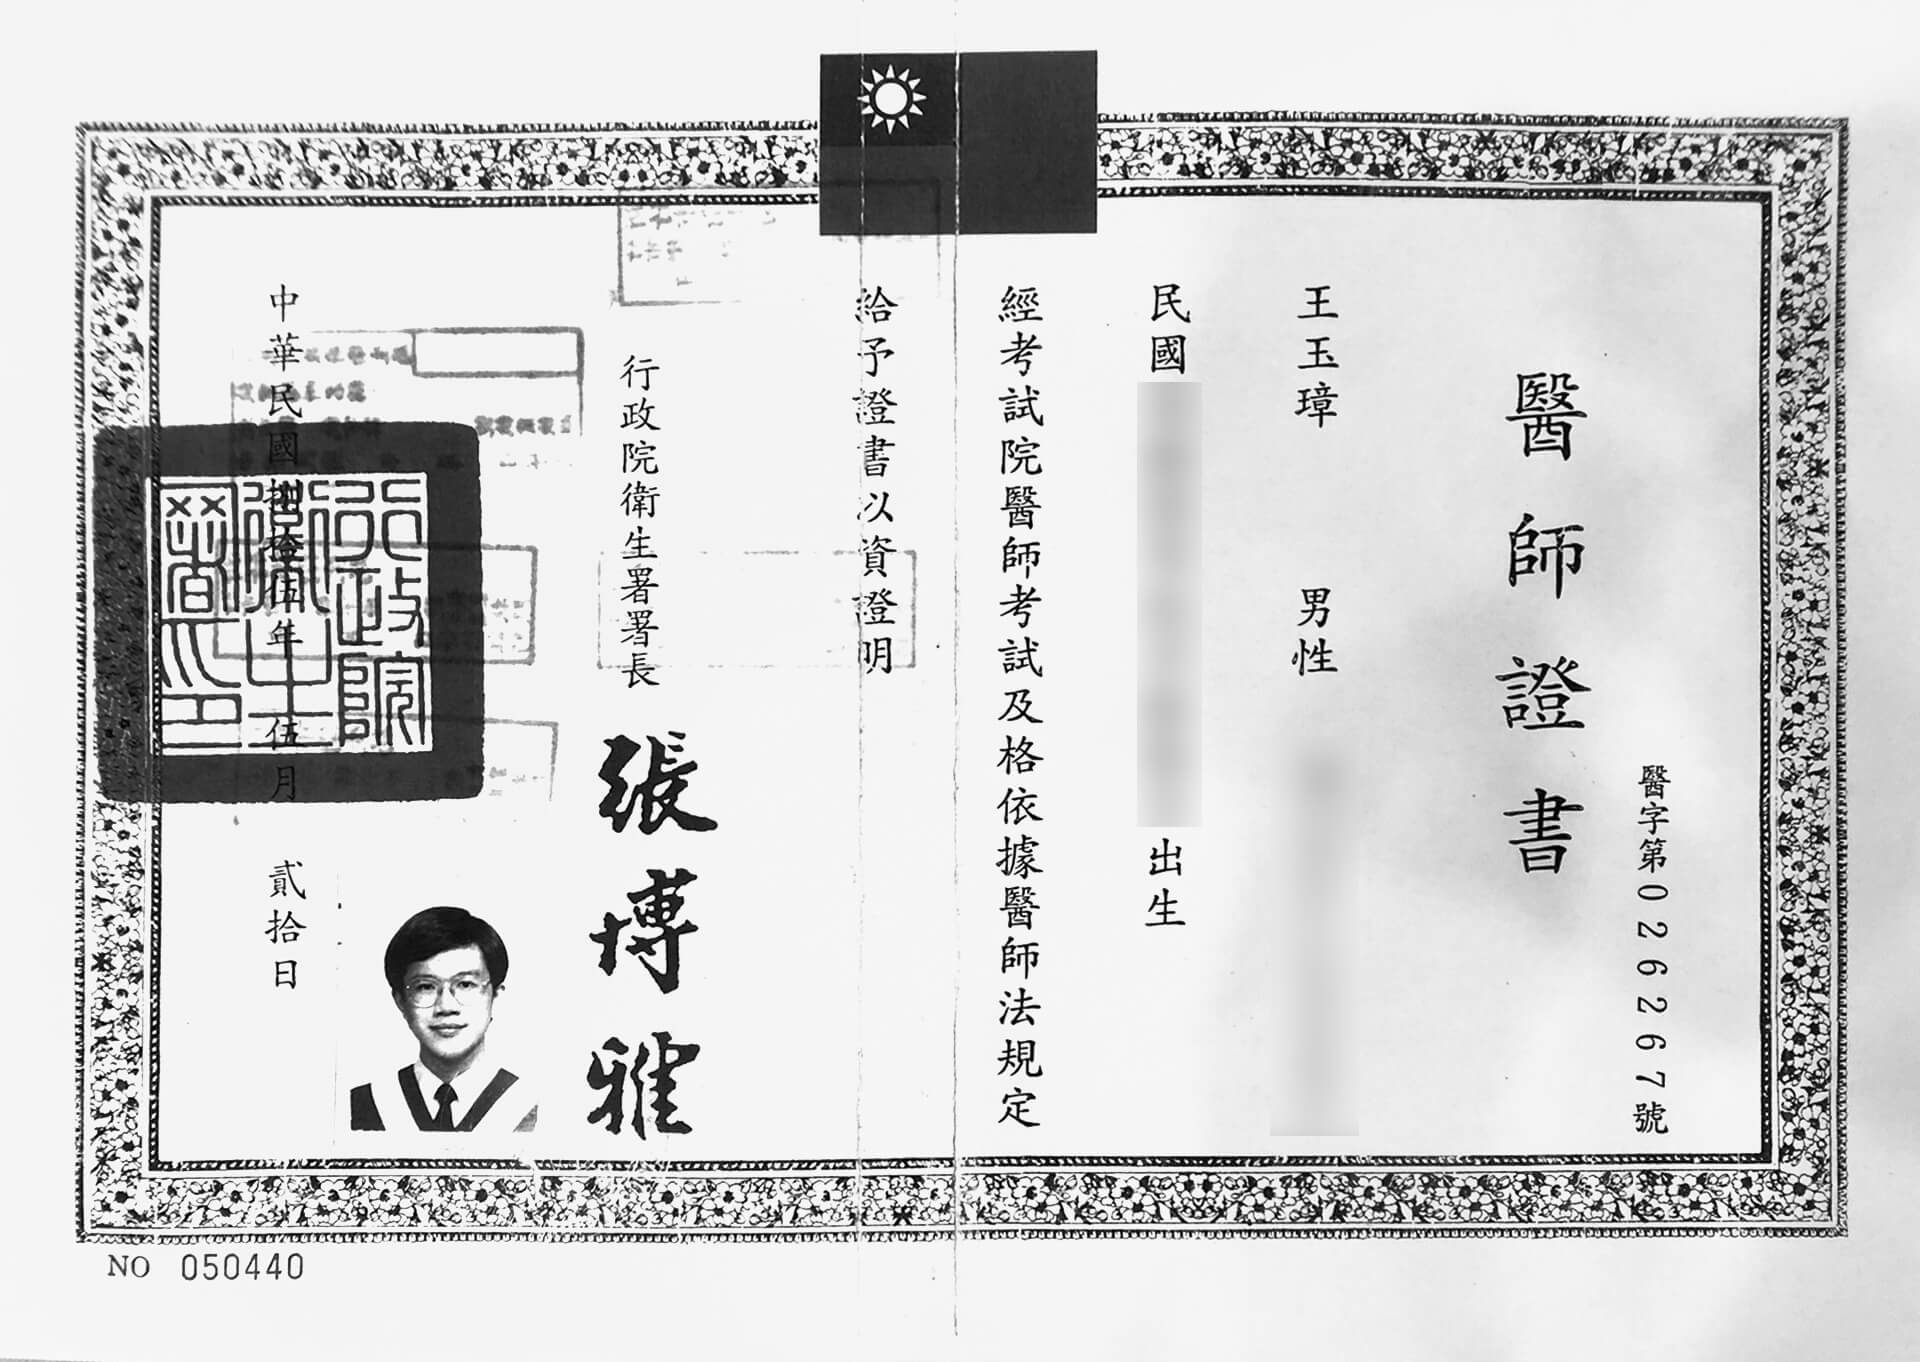 醫字第026267號
醫師證書
王玉璋 男性
民國
出生
經考試院醫師考試及格依據醫師法規定
給予證書以資證明
行政院衛生署署長
張博雅
中華民國捌拾伍年伍月貳拾日
行政院衛生署印
NO 050440